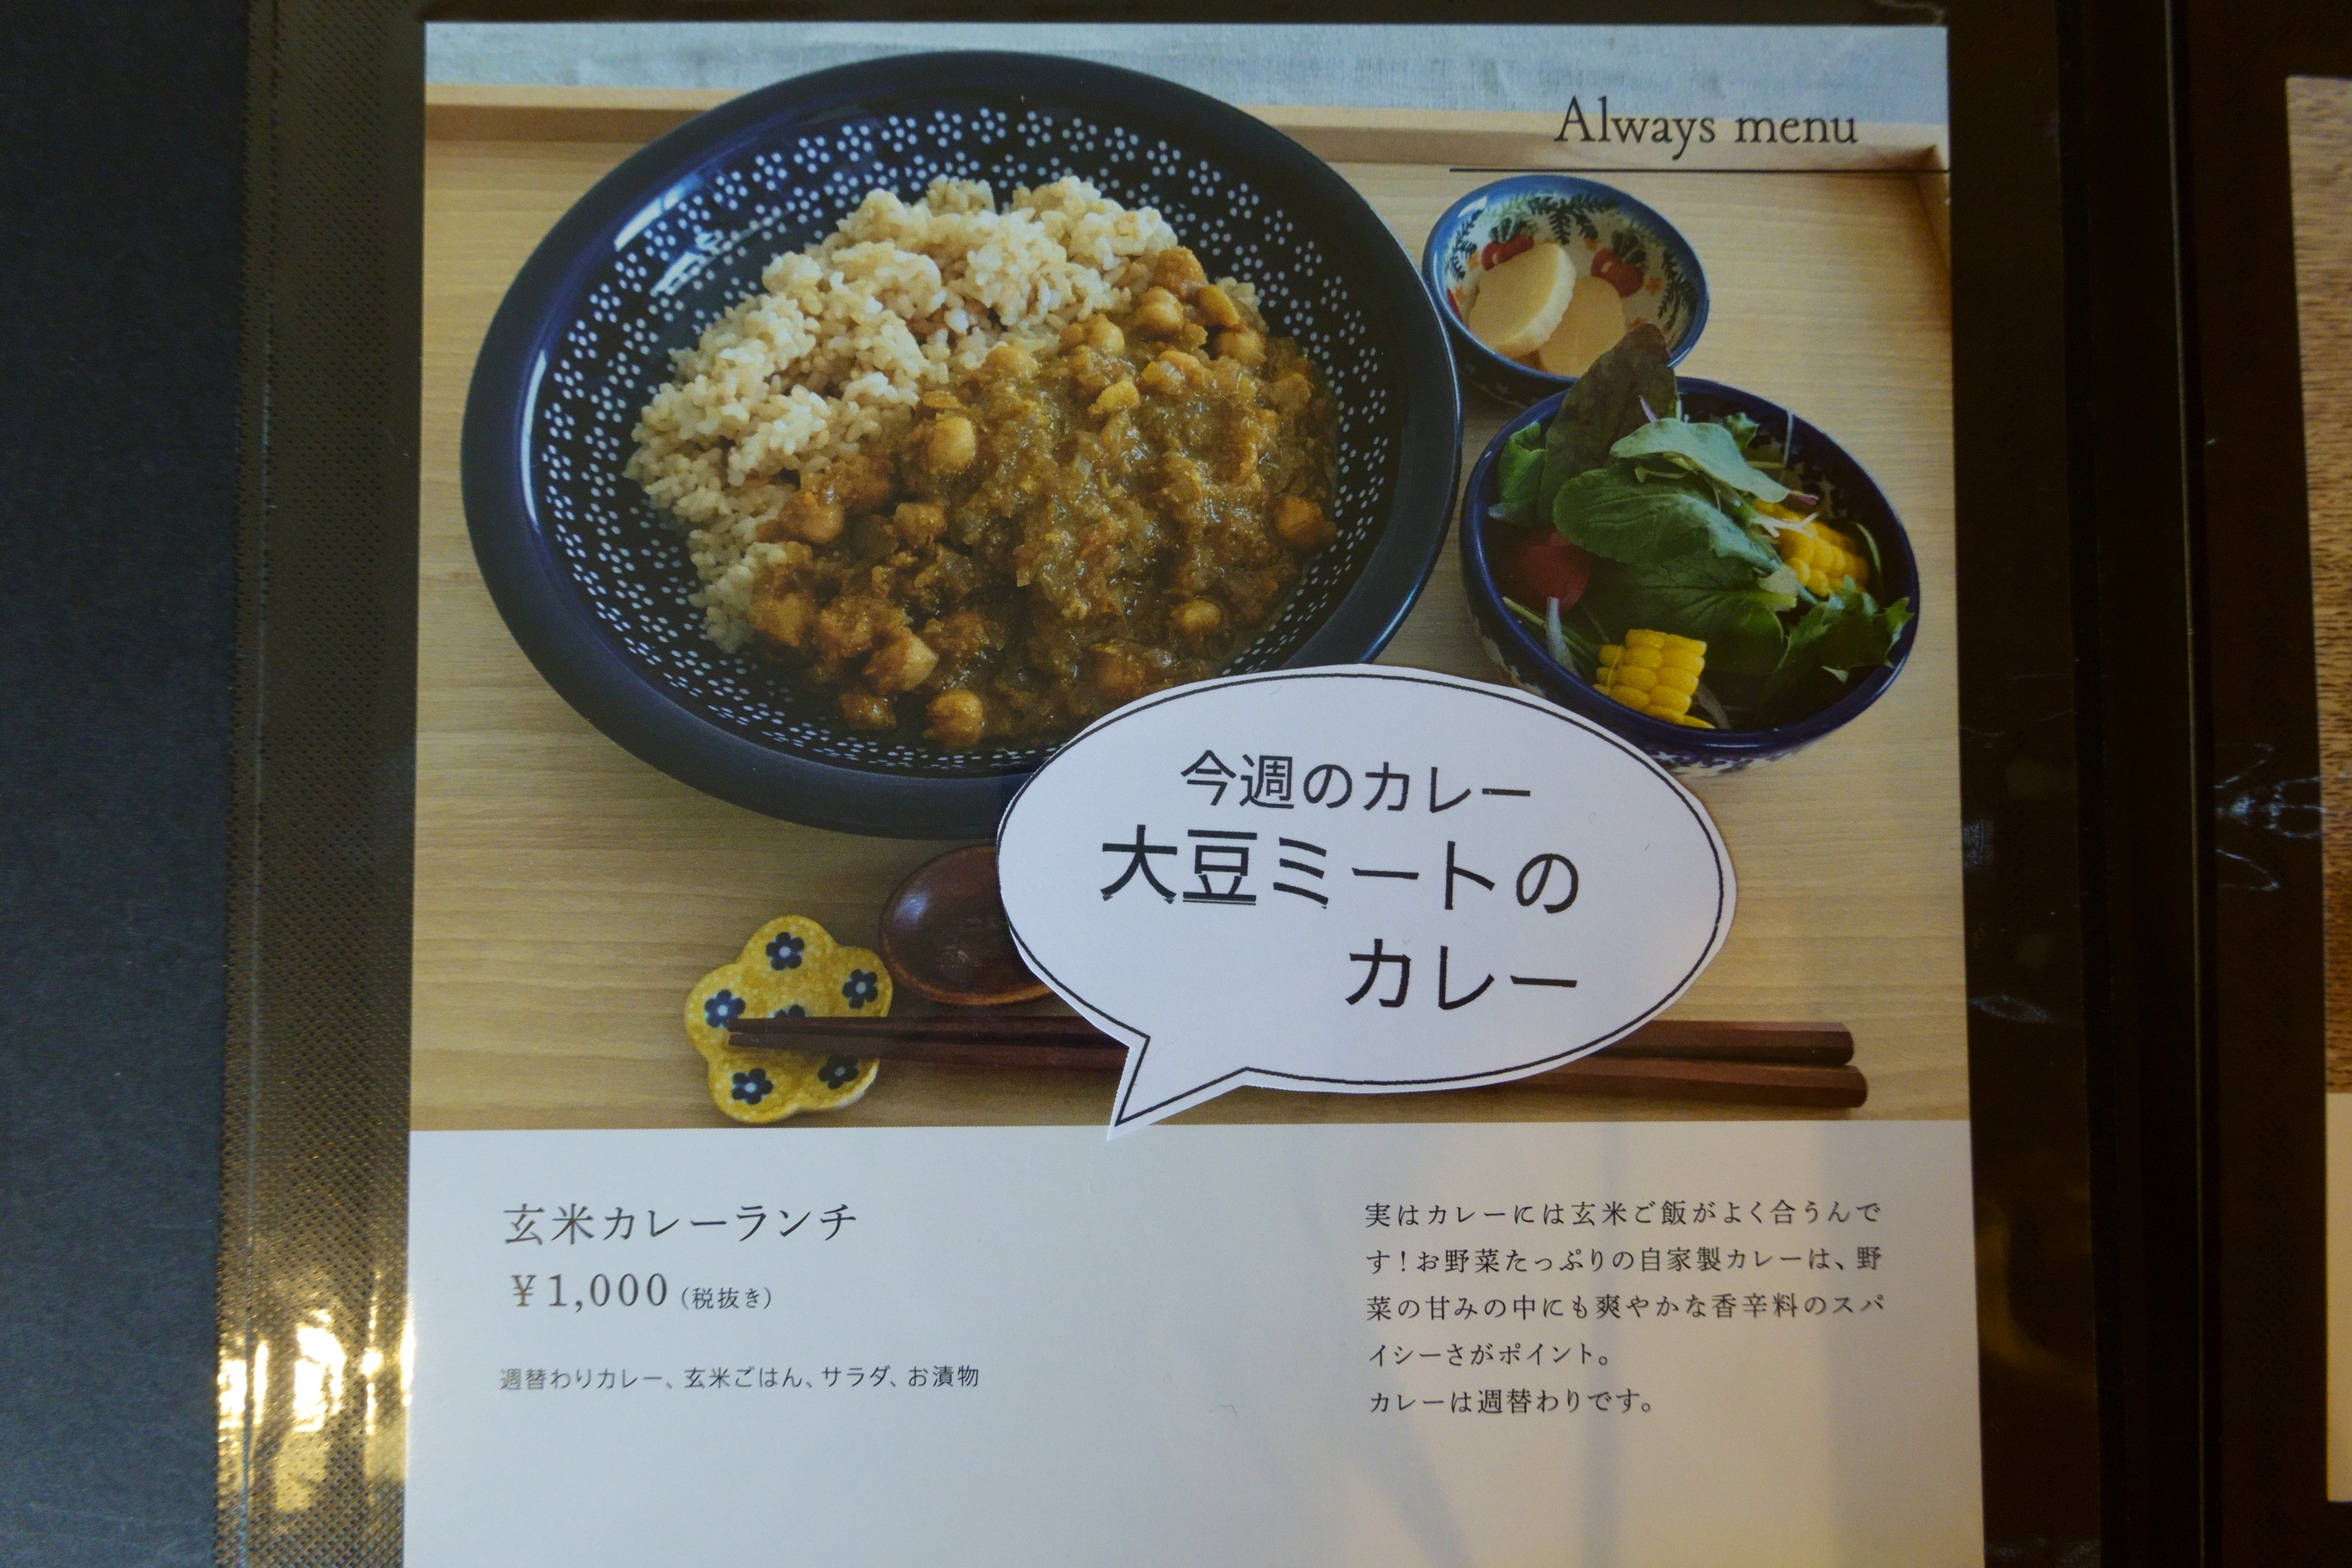 Always menu
今週のカレー
大豆ミートの
カレー
玄米カレーランチ
¥1,000(税抜き)
週替わりカレー、玄米ごはん、サラダ、お漬物
実はカレーには玄米ご飯がよく合うんで
す!お野菜たっぷりの自家製カレーは、野
菜の甘みの中にも爽やかな香辛料のスパ
イシーさがポイント。
カレーは週替わりです。